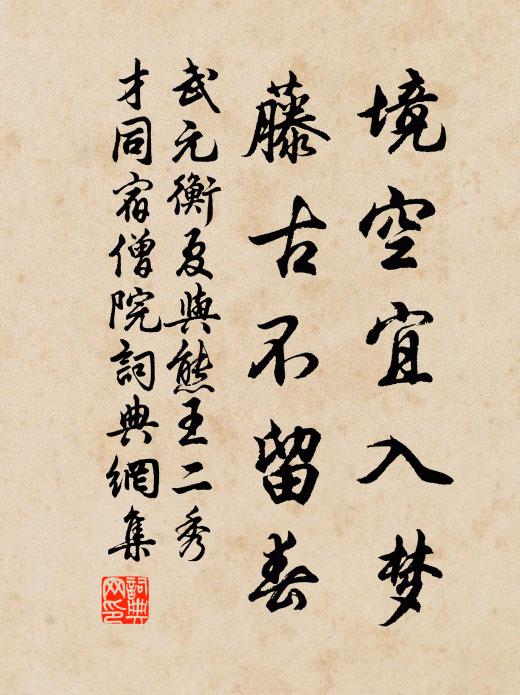 境空宜入梦
藤古不留春
武元衡夏與熊王二秀
才同宿僧院詞典網集
詞典
网印